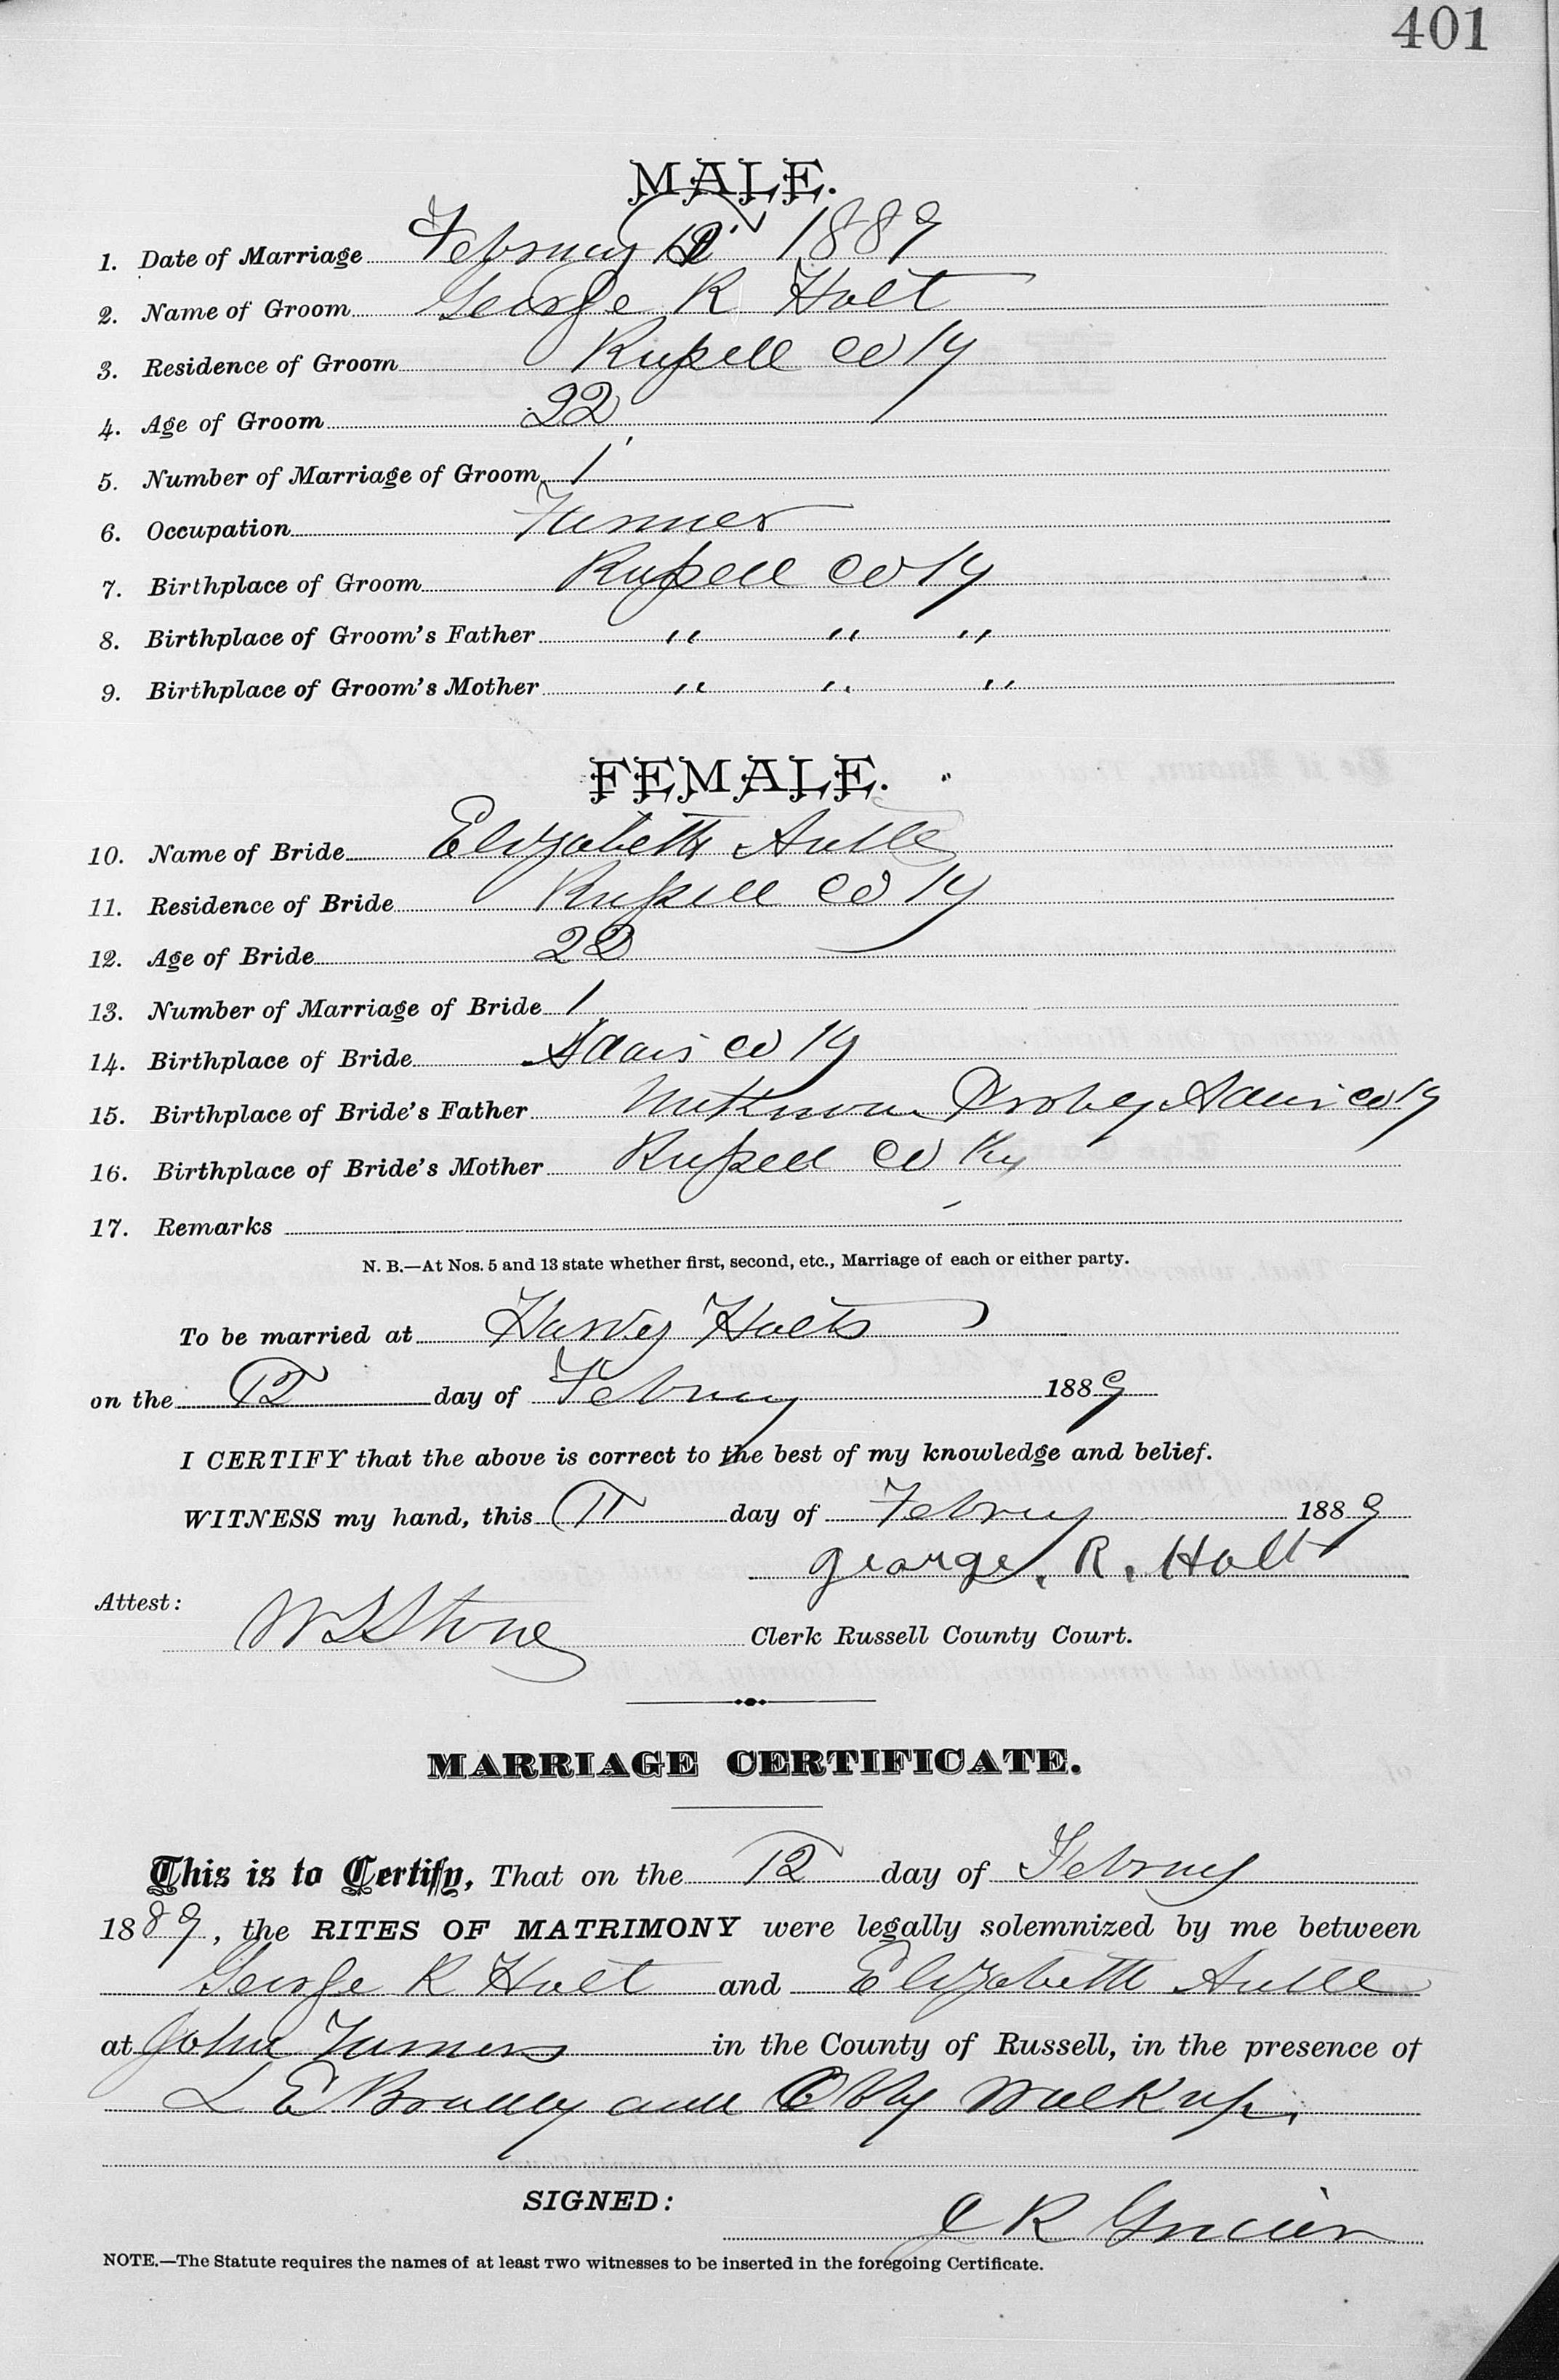 401
MALE.
1. Date of Marriage February 12 1889
2. Name of Groom George R Holt
3. Residence of Groom Russell Co Ky
4. Age of Groom 22
5. Number of Marriage of Groom 1
6. Occupation Farmer
7. Birthplace of Groom Russell Co Ky
8. Birthplace of Groom's Father " " "
9. Birthplace of Groom's Mother " " "
FEMALE.
10. Name of Bride Elizabeth Antle
11. Residence of Bride Russell Co Ky
12. Age of Bride 22
13. Number of Marriage of Bride 1
14. Birthplace of Bride Adair Co Ky
15. Birthplace of Bride's Father Unknown Proby Adair Co Ky
16. Birthplace of Bride's Mother Russell Co Ky
17. Remarks
N. B.—At Nos. 5 and 13 state whether first, second, etc., Marriage of each or either party.
To be married at Harvey Holts
on the 12 day of February 1889
I CERTIFY that the above is correct to the best of my knowledge and belief.
WITNESS my hand, this 11 day of Februy 1889
george. R. Holt
Attest: W S Stone Clerk Russell County Court.
MARRIAGE CERTIFICATE.
This is to Certify, That on the 12 day of Februy
1889, the RITES OF MATRIMONY were legally solemnized by me between
George R Holt and Elizabeth Antle
at John Turners in the County of Russell, in the presence of
L E Bradley and Obby Walkup.
SIGNED: J R
NOTE.—The Statute requires the names of at least TWO witnesses to be inserted in the foregoing Certificate.